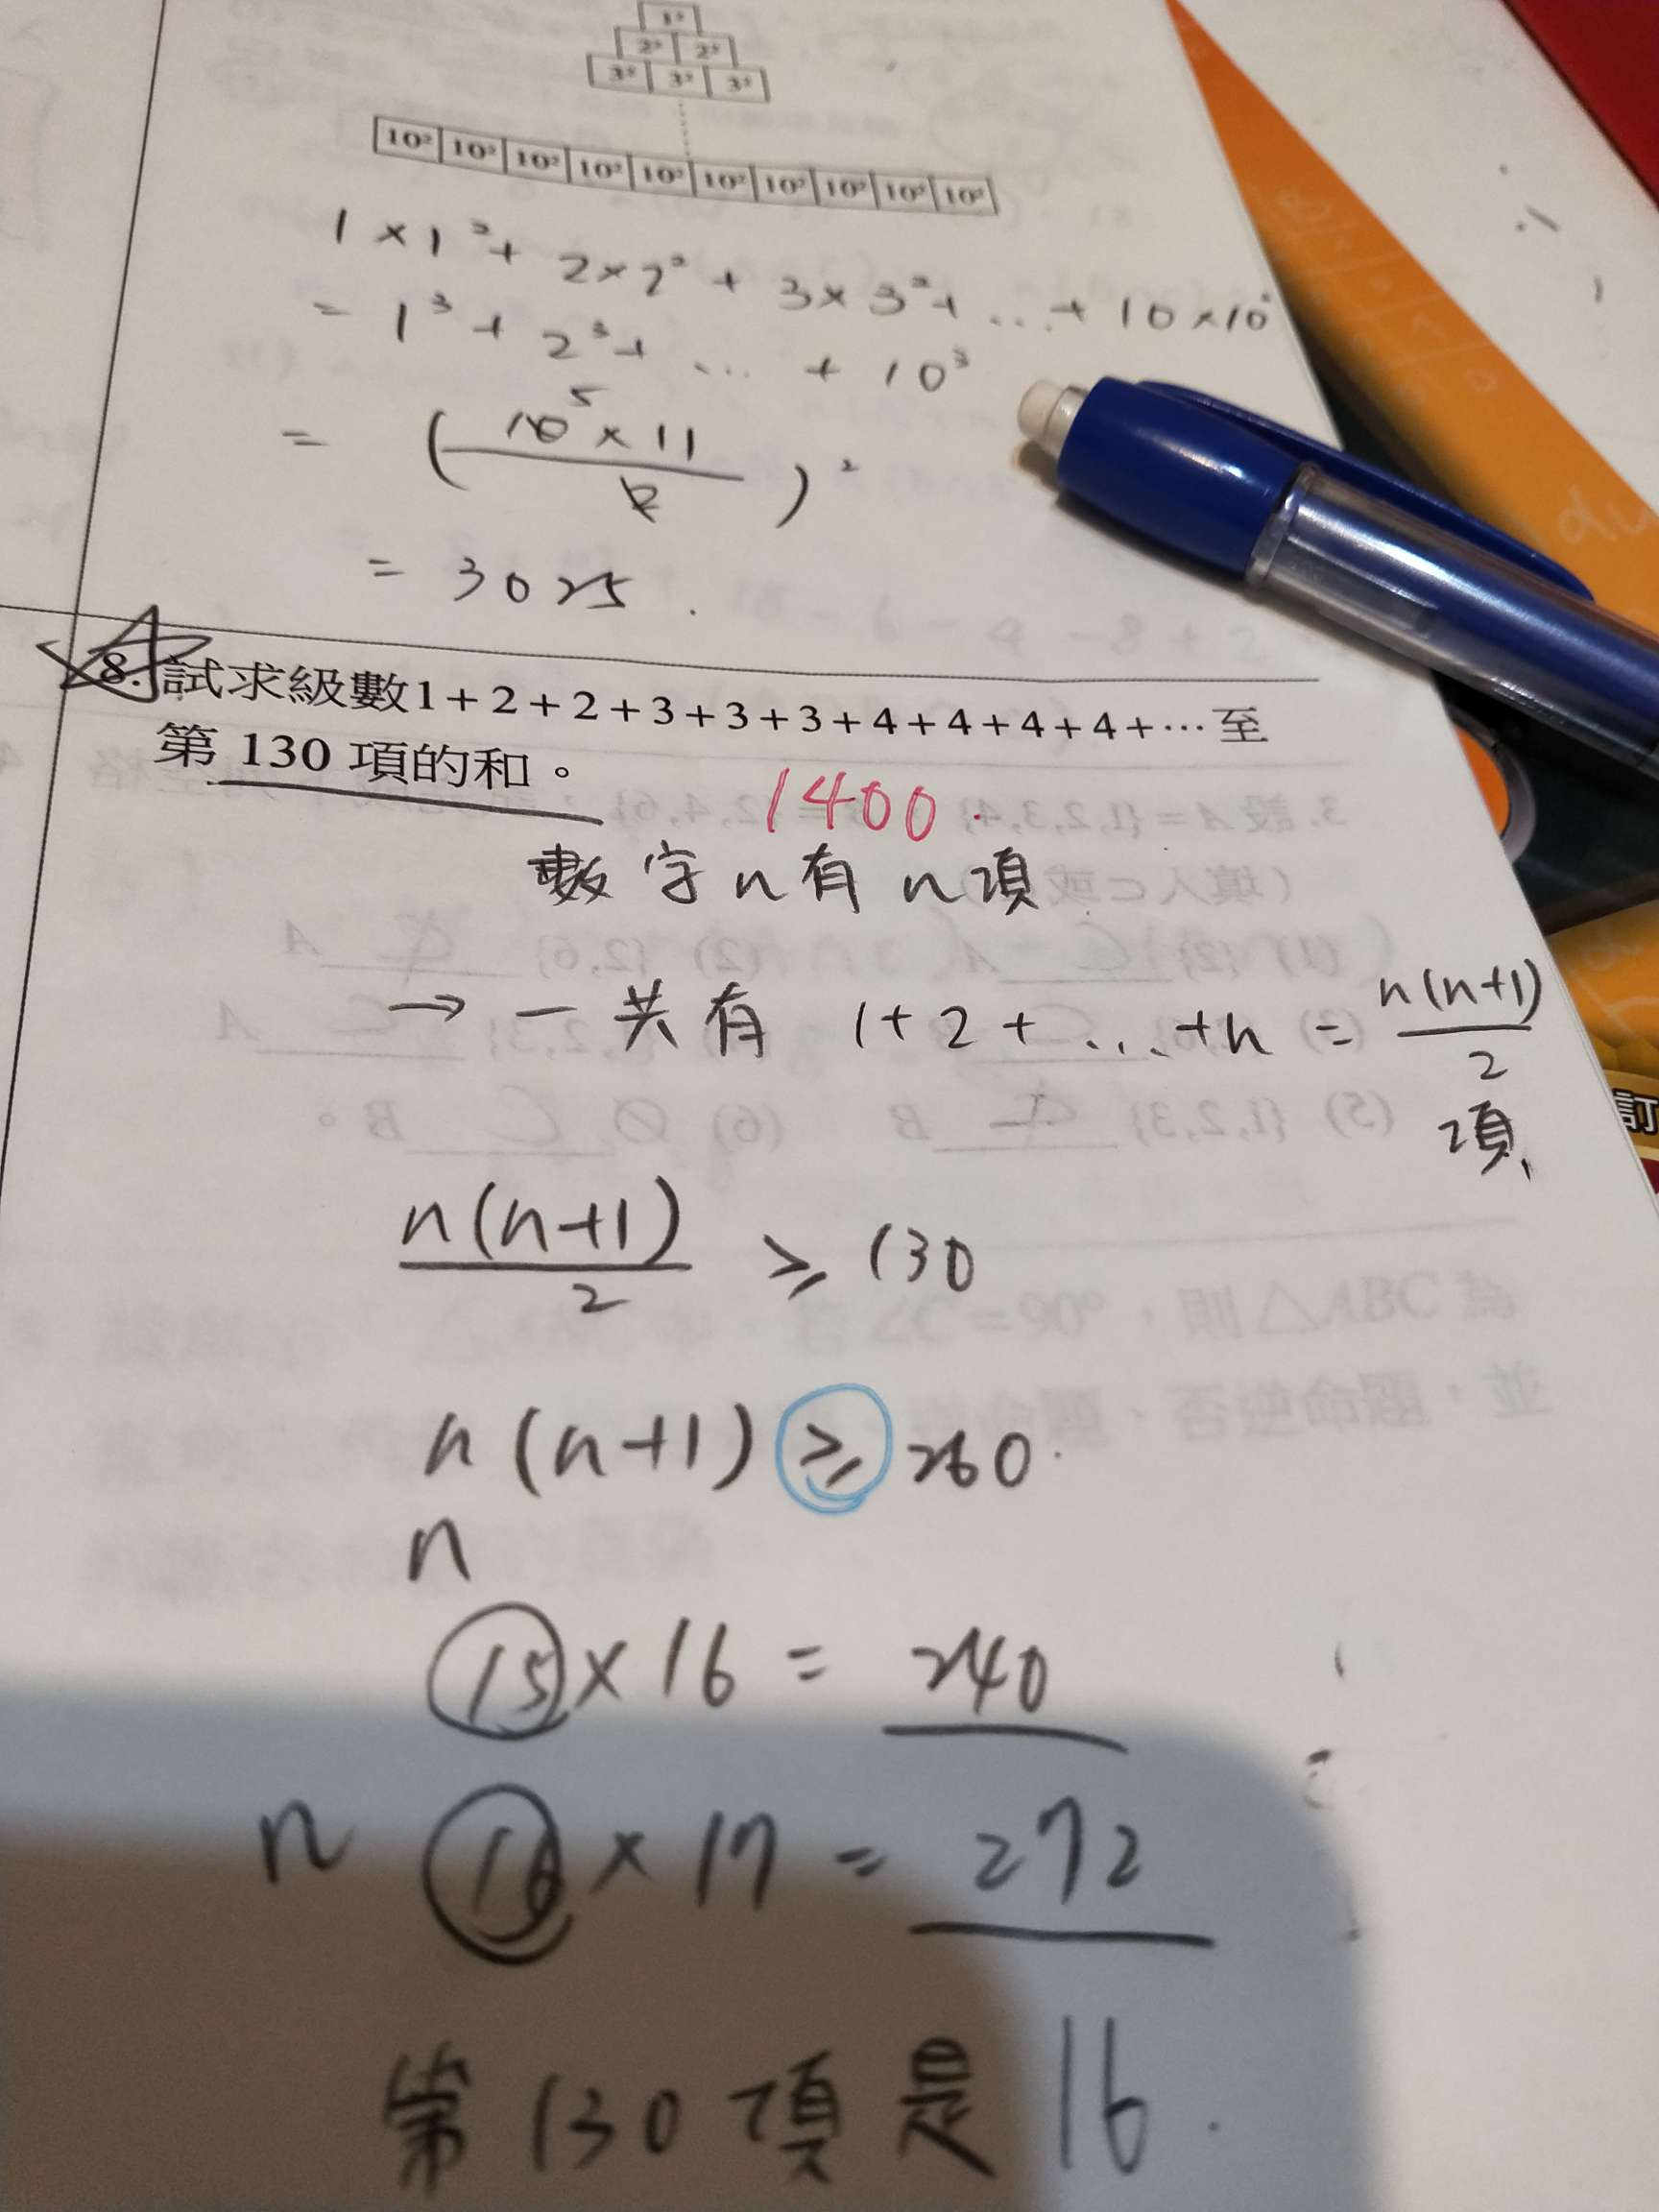 1²
2² 2²
3² 3² 3²
10² 10² 10² 10² 10² 10² 10² 10² 10² 10²
1×1²+2×2²+3×3²+...+10×10²
=1³+2³+...+10³
=(10×11/2)²
5
=3025.
8. 試求級數1+2+2+3+3+3+4+4+4+4+⋯至
第 130 項的和。
1400.
數字n有n項
→一共有 1+2+...+n = n(n+1)/2
項
n(n+1)/2 ≥ 130
n(n+1) ≥ 260.
n
15×16=240
n 16×17=272
第130項是16.
訂